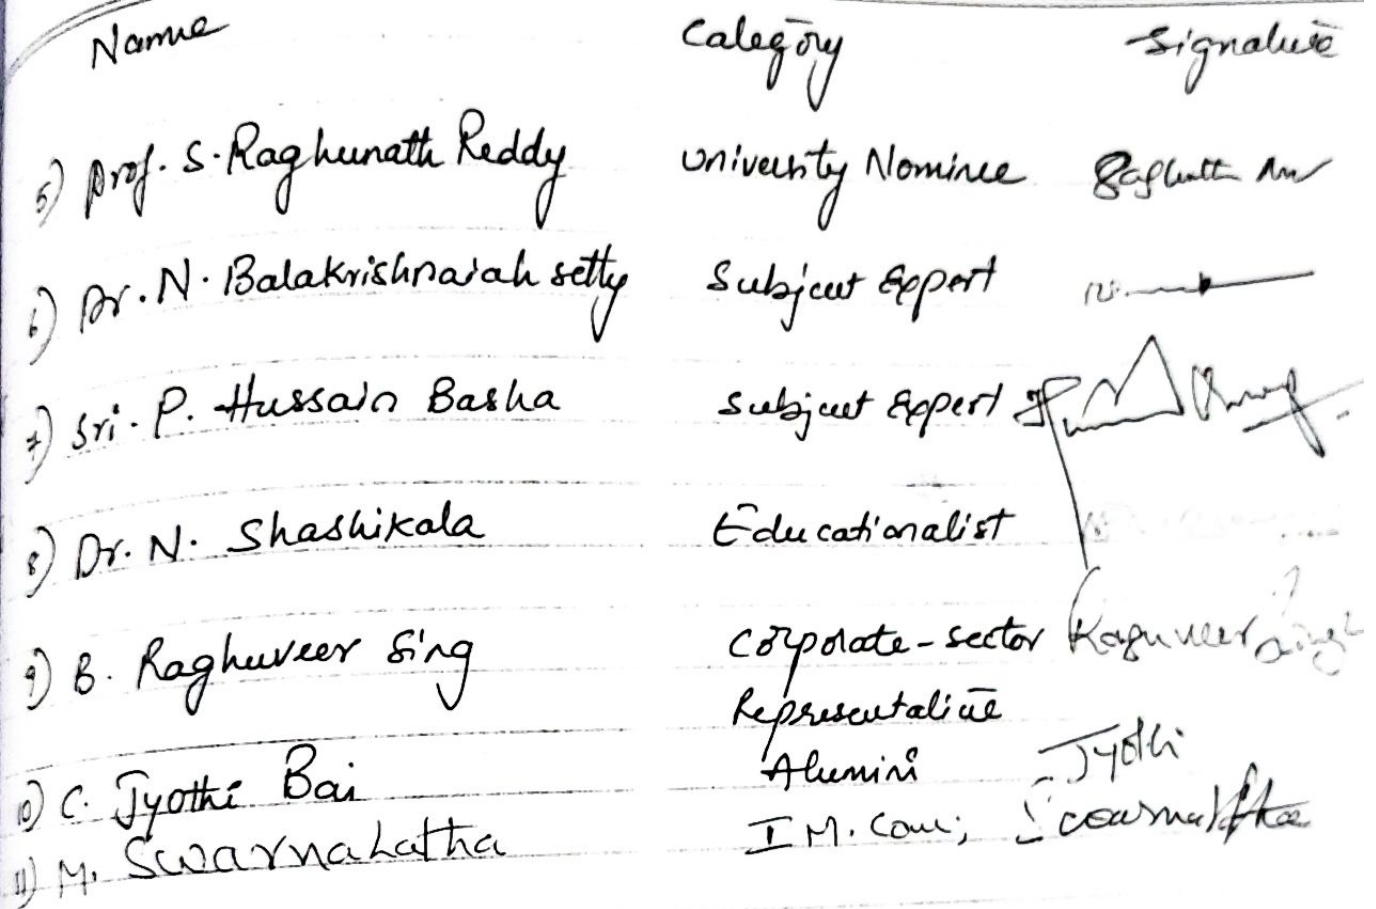 Name Category Signature
5) Prof. S. Raghunath Reddy University Nominee
6) Dr. N. Balakrishnaiah setty Subject Expert
7) Sri. P. Hussain Basha Subject Expert
8) Dr. N. Shashikala Educationalist
9) B. Raghuveer Sing Corporate-sector Raguveer Singh
Representative
10) C. Jyothi Bai Alumini Jyothi
11) M. SwarnaLatha I M. Com; Swarnalatha